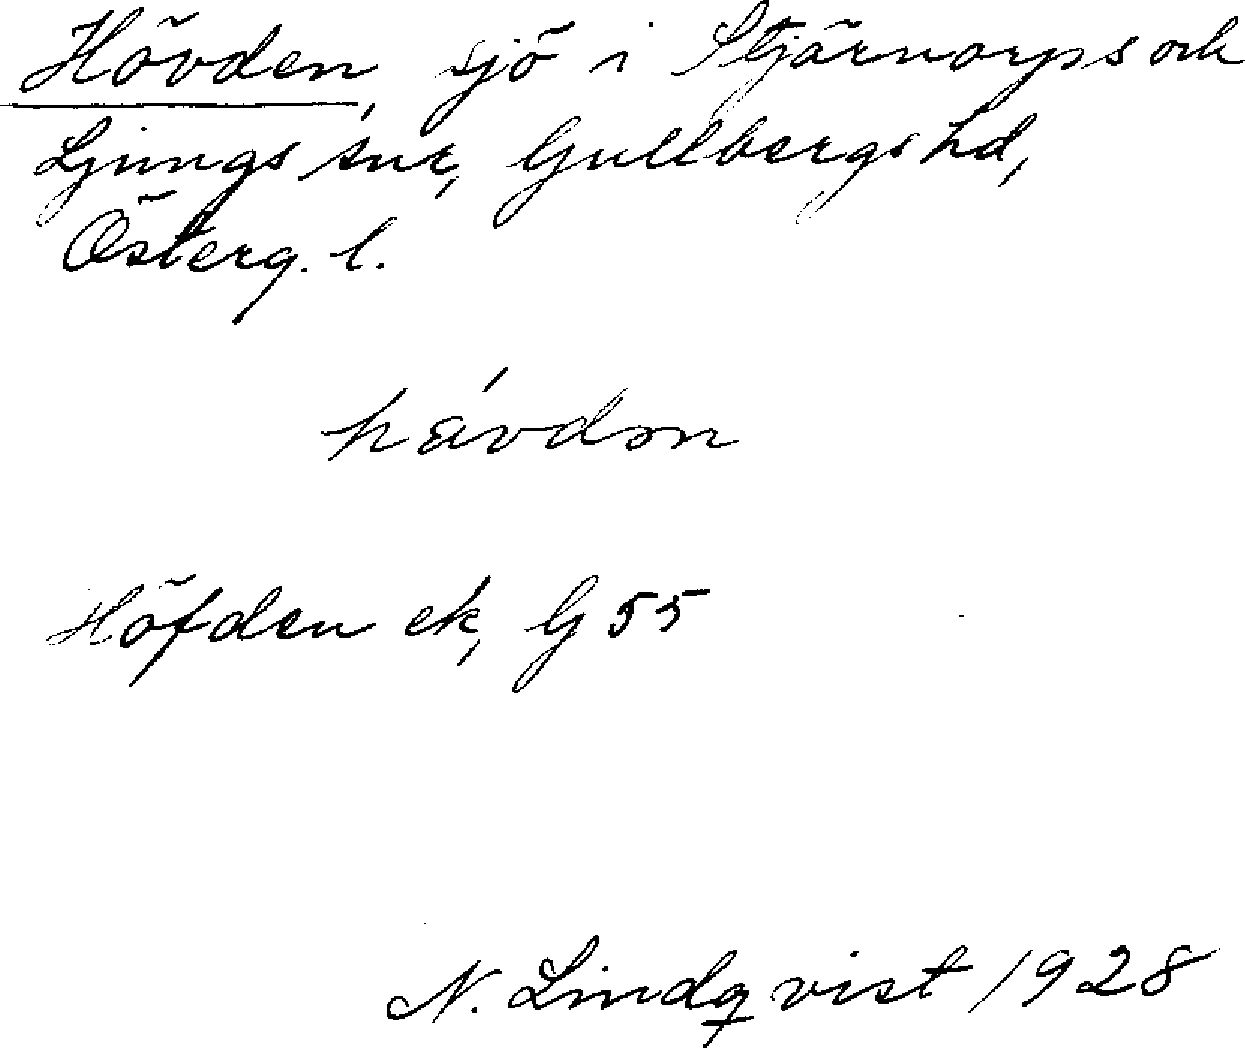 Hövden, sjö i Stjärnorps och
Ljungs snr, Gullbergs hd,
Österg. l.
hävdən
Höfden ek, G 55
N. Lindqvist 1928